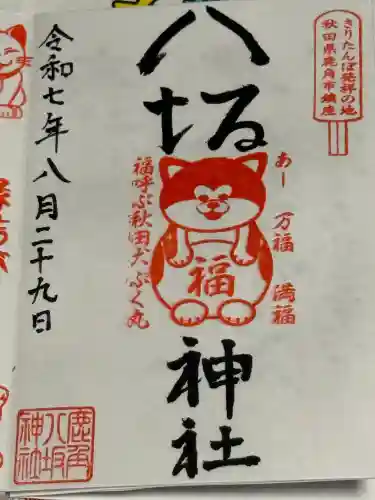 きりたんぽ発祥の地
秋田県鹿角市鎮座
八坂神社
あー 万福 満福
福
福呼ぶ秋田犬 ふく丸
令和七年八月二十九日
鹿角
八坂
神社